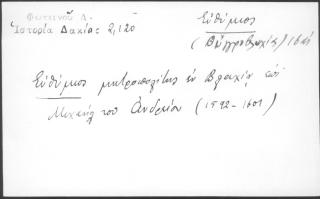 Φωτεινοῦ Δ.
Ἱστορία Δακίας 2,120
Εὐθύμιος
(Οὐγγροβλαχίας) 1601
Εὐθύμιος μητροπολίτης ἐν Βλαχίᾳ ἐπὶ
Μιχαὴλ τοῦ Ἀνδρείου (1592-1601)